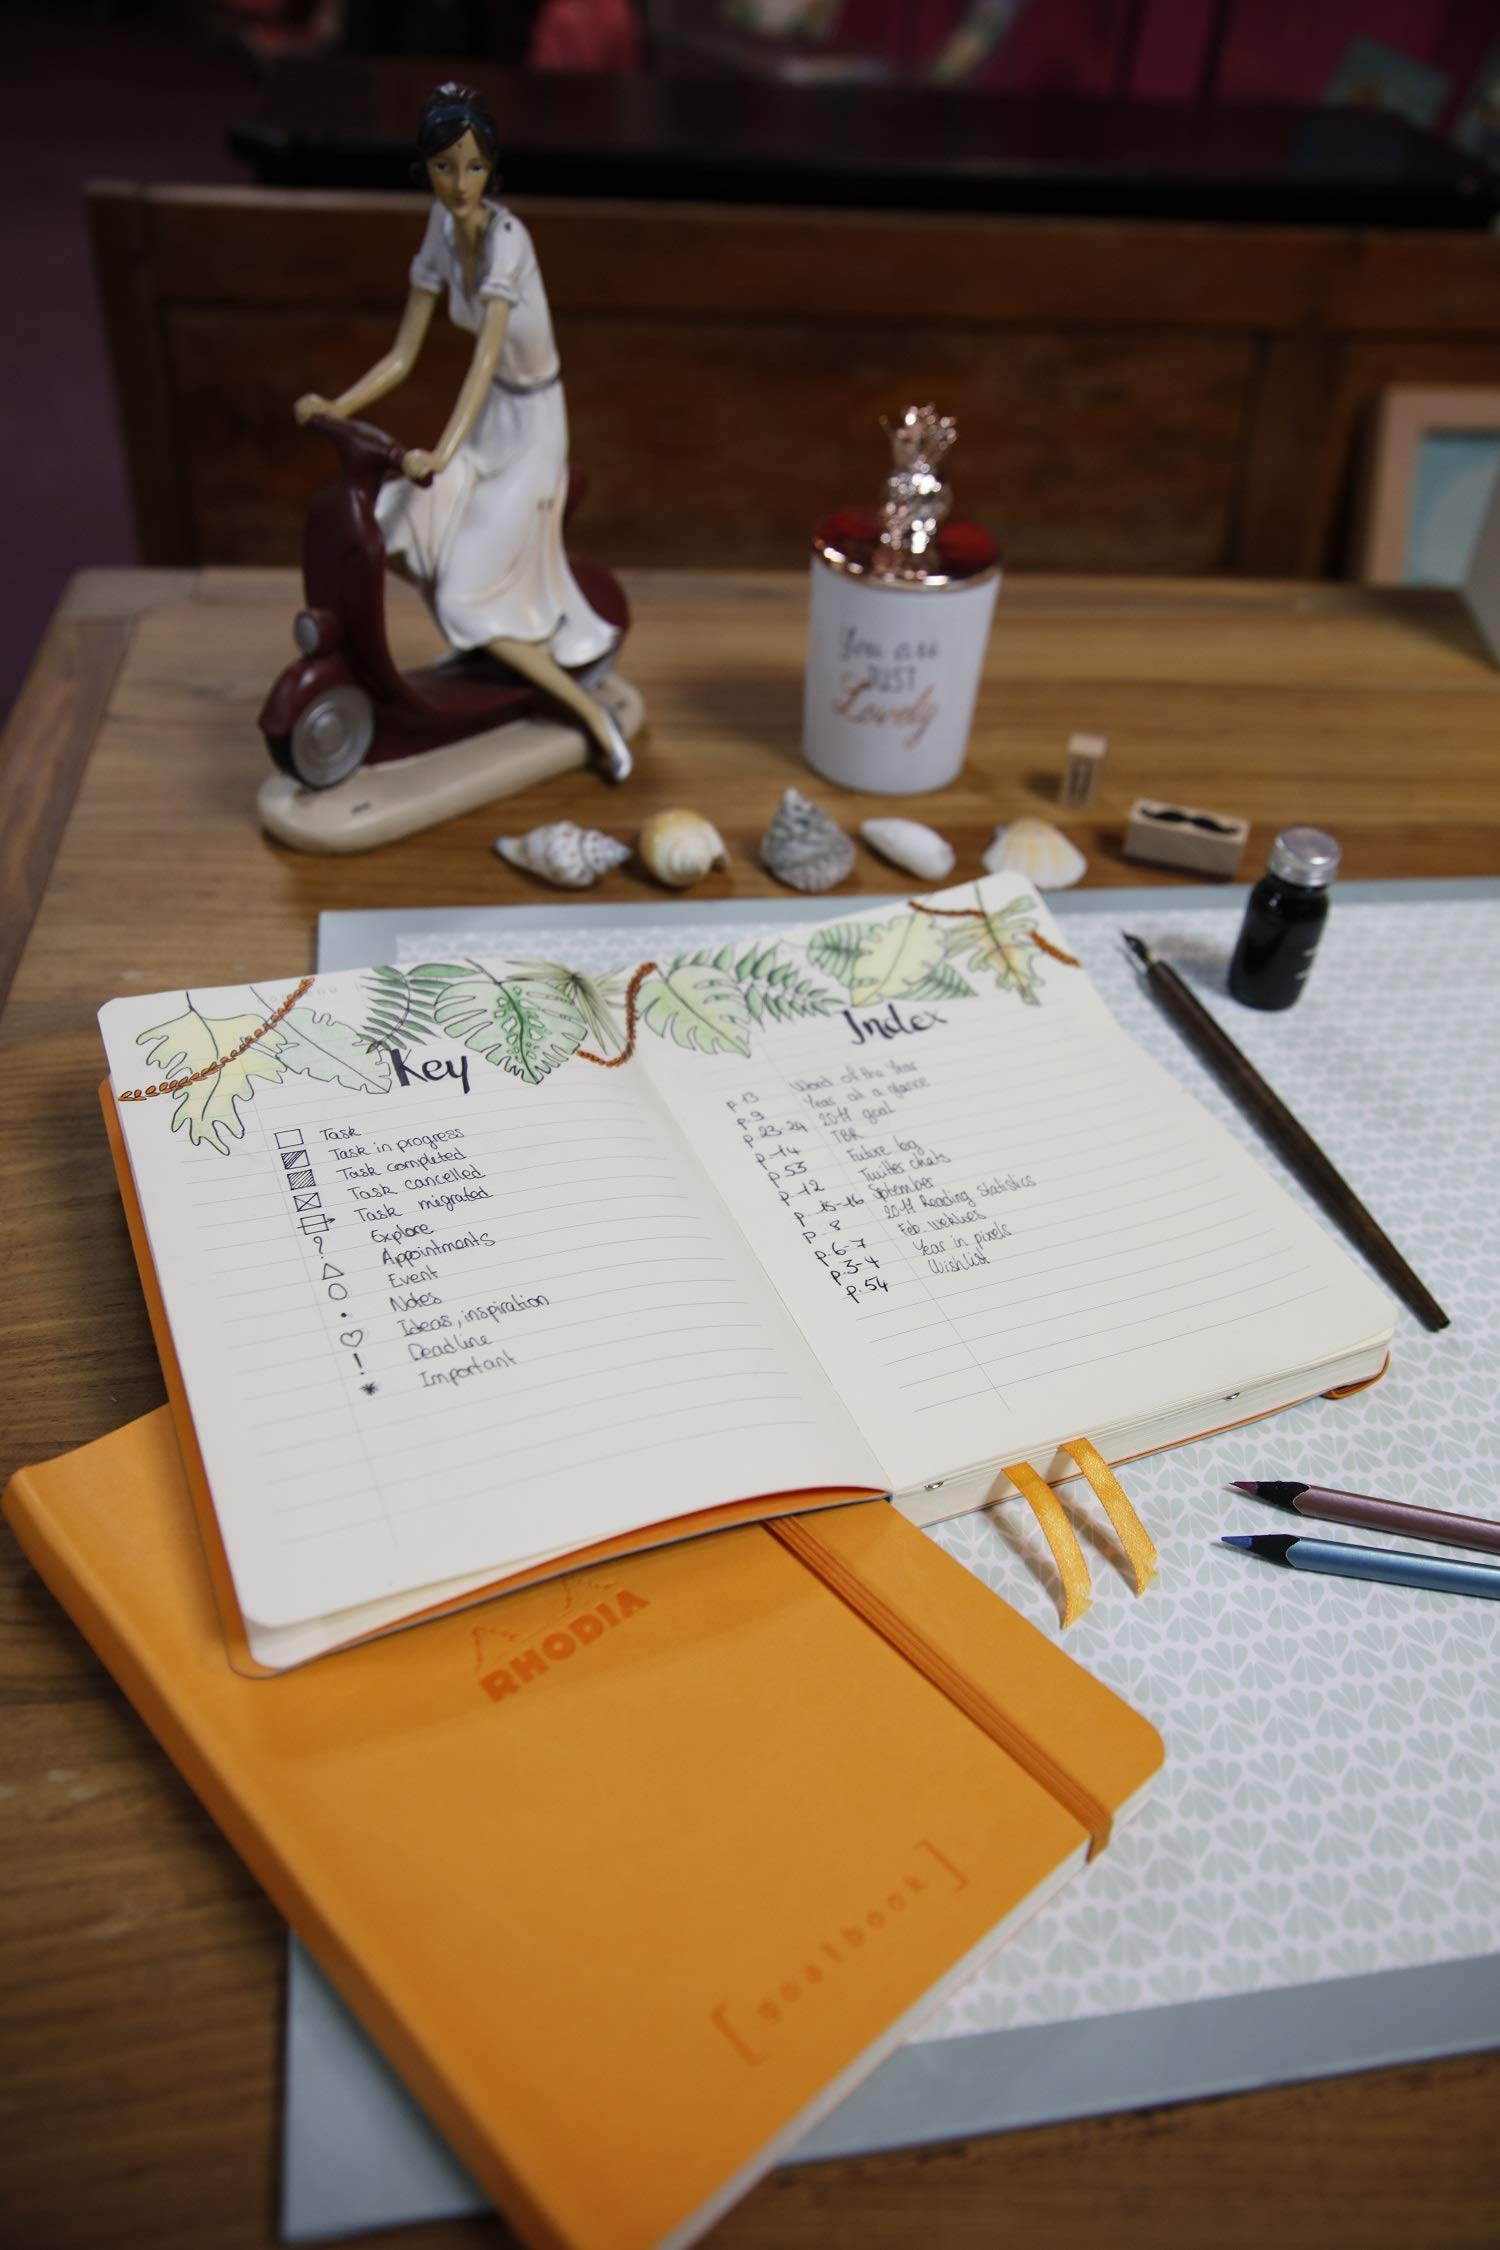 You are
JUST
Lovely
Key
Task
Task in progress
Task completed
Task cancelled
Task migrated
Explore
Appointments
Event
Notes
Ideas, inspiration
Deadline
Important
Index
p.13 Word of the Year
p.9 Year at a glance
p.23-24 2017 goal
p.14 TBR
p.53 Future log
p.12 Twitter chats
p.15-16 September
p 8 2017 Reading statistics
p.6-7 Feb. weeklies
p.3-4 Year in pixels
p.54 Wishlist
RHODIA
[goalbook]